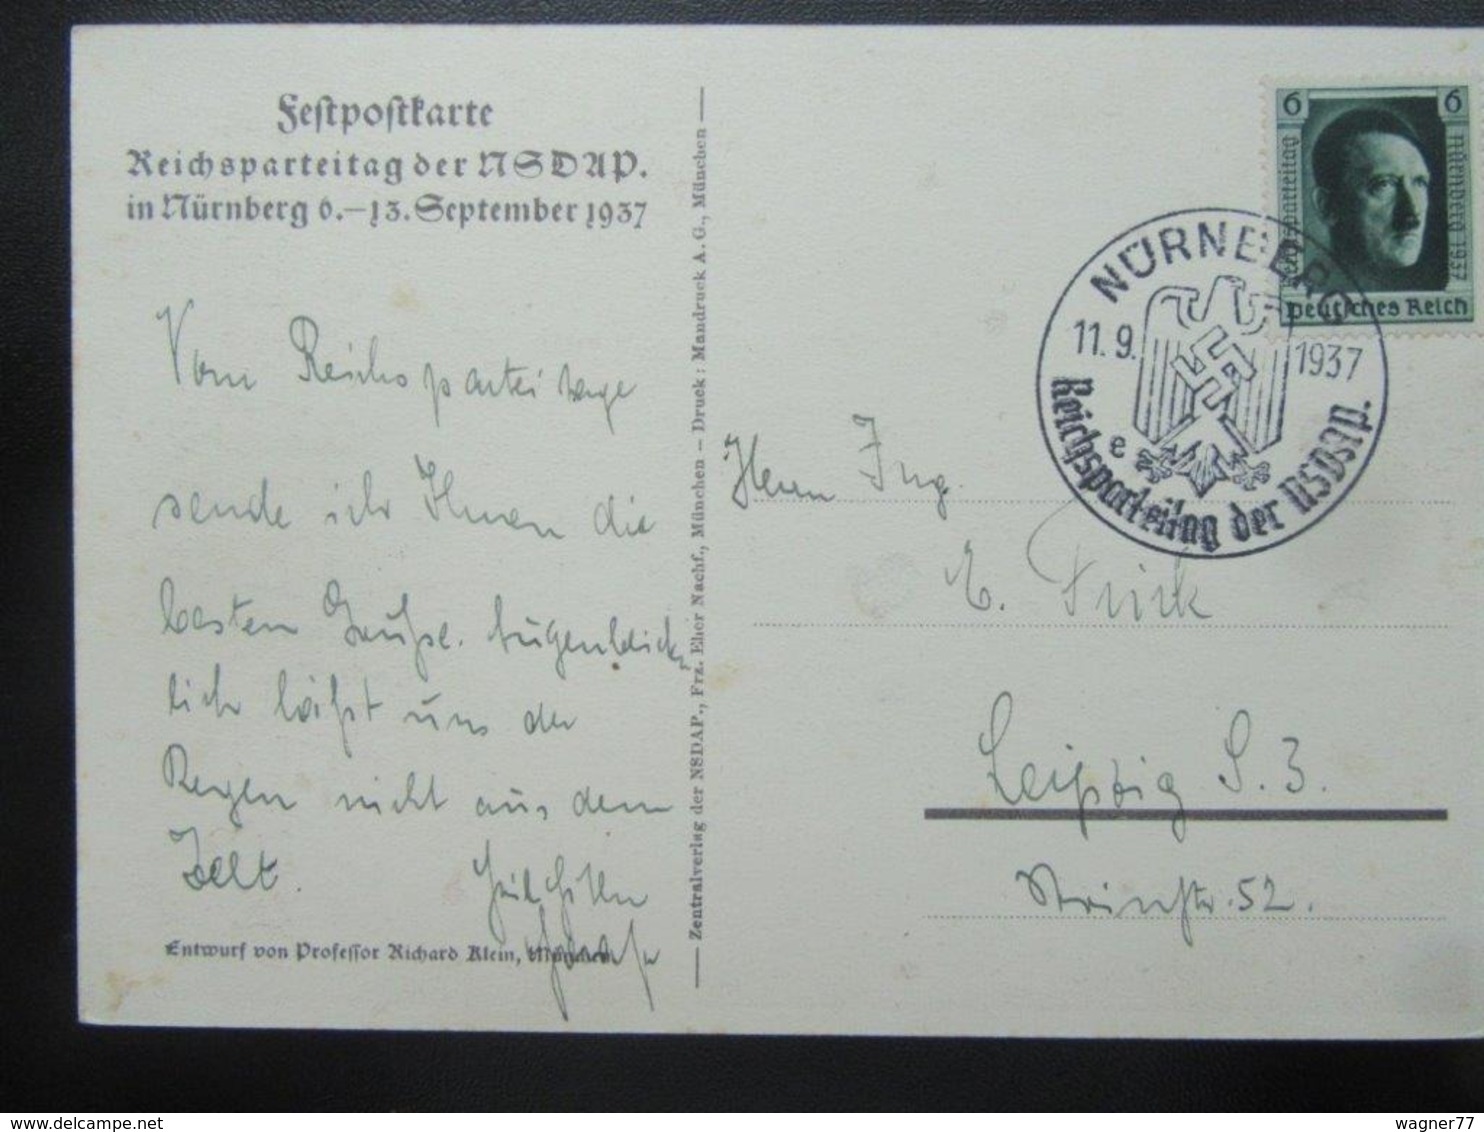 Festpostkarte
Reichsparteitag der NSDAP.
in Nürnberg 6.–13. September 1937
Vom Reichsparteitage
sende ich Ihnen die
besten Grüße. Augenblick-
lich läßt uns der
Regen nicht aus dem
Zelt.
Heil Hitler
Entwurf von Professor Richard Klein, München
Zentralverlag der NSDAP., Frz. Eher Nachf., München – Druck: Mandruck A.G., München
6 6
Reichsparteitag
Nürnberg 1937
Deutsches Reich
NÜRNBERG
11.9. 1937
e
Reichsparteitag der NSDAP.
Herrn Ing.
E. Frick
Leipzig S. 3.
Steinstr. 52.
wagner77